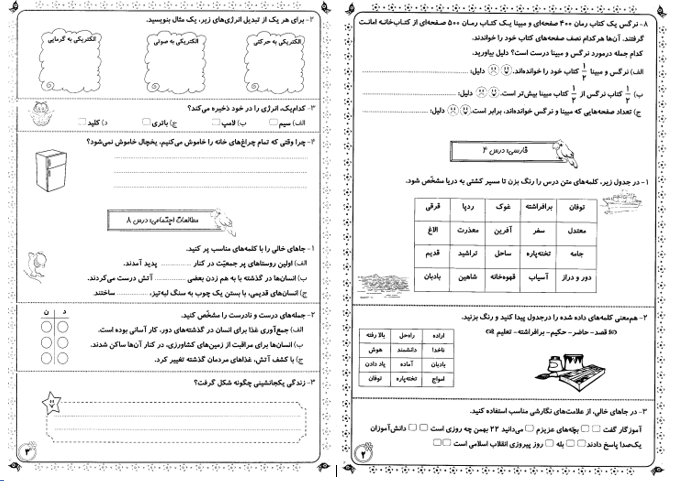 ۸- نرگس یک کتاب رمان ۴۰۰ صفحه‌ای و مبینا یک کتاب رمان ۵۰۰ صفحه‌ای از کتاب‌خانه امانت
گرفتند. آن‌ها هرکدام نصف صفحه‌های کتاب خود را خواندند.
کدام جمله درمورد نرگس و مبینا درست است؟ دلیل بیاورید.
الف) نرگس و مبینا ۱/۲ کتاب خود را خوانده‌اند. دلیل:
ب) ۱/۲ کتاب نرگس از ۱/۲ کتاب مبینا بیش‌تر است. دلیل:
ج) تعداد صفحه‌هایی که مبینا و نرگس خوانده‌اند، برابر است. دلیل:
فارسی: درس ۴
۱- در جدول زیر، کلمه‌های متن درس را رنگ بزن تا مسیر کشتی به دریا مشخّص شود.
توفان برافراشته غوک ردپا قرقی
معتدل سفر آفرین معذرت الاغ
جامه تخته‌پاره ساحل تراشید قدیم
دور و دراز آسیاب قهوه‌خانه شاهین بادبان
۲- هم‌معنی کلمه‌های داده شده را درجدول پیدا کنید و رنگ بزنید.
قصد- حاضر- حکیم- برافراشته- تعلیم
اراده راه‌حل بالا رفته
ناخدا دانشمند هوش
بادبان آماده یاد دادن
امواج تخته‌پاره توفان
۳- در جاهای خالی، از علامت‌های نگارشی مناسب استفاده کنید.
آموزگار گفت بچّه‌های عزیزم می‌دانید ۲۲ بهمن چه روزی است دانش‌آموزان
یک‌صدا پاسخ دادند بله روز پیروزی انقلاب اسلامی است
۲
۲- برای هر یک از تبدیل انرژی‌های زیر، یک مثال بنویسید.
الکتریکی به حرکتی الکتریکی به صوتی الکتریکی به گرمایی
۳- کدام‌یک، انرژی را در خود ذخیره می‌کند؟
الف) سیم ب) لامپ ج) باتری د) کلید
۴- چرا وقتی که تمام چراغ‌های خانه را خاموش می‌کنیم، یخچال خاموش نمی‌شود؟
مطالعات اجتماعی: درس ۸
۱- جاهای خالی را با کلمه‌های مناسب پر کنید.
الف) اولین روستاهای پر جمعیّت در کنار .......... پدید آمدند.
ب) انسان‌ها در گذشته با به هم زدن بعضی .......... آتش درست می‌کردند.
ج) انسان‌های قدیمی، با بستن یک چوب به سنگ لبه‌تیز، .......... ساختند
۲- جمله‌های درست و نادرست را مشخّص کنید.
د ن
الف) جمع‌آوری غذا برای انسان در گذشته‌های دور، کار آسانی بوده است.
ب) انسان‌ها برای مراقبت از زمین‌های کشاورزی، در کنار آن‌ها ساکن شدند.
ج) با کشف آتش، غذاهای مردمان گذشته تغییر کرد.
۳- زندگی یکجانشینی چگونه شکل گرفت؟
۳